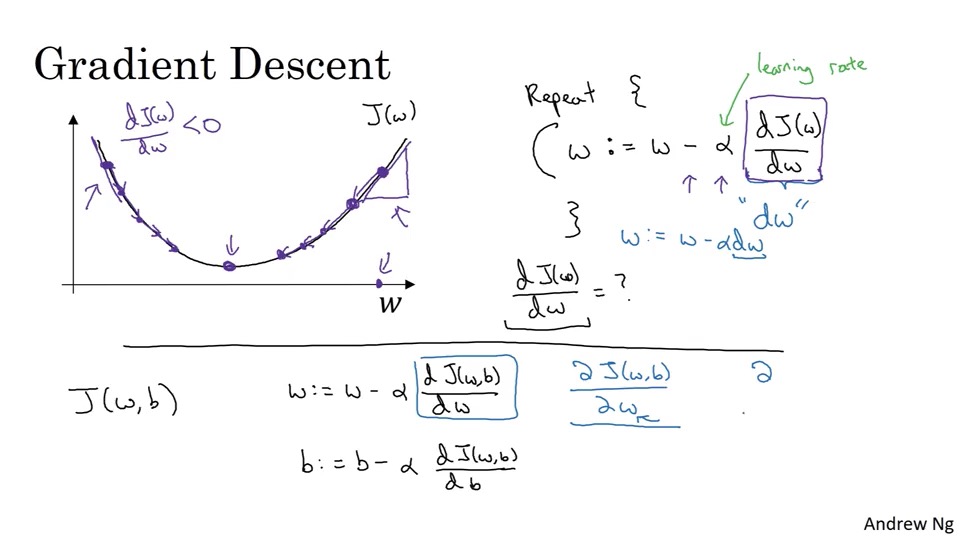 Gradient Descent
learning rate
dJ(w)/dw < 0
J(w)
Repeat {
w := w - α dJ(w)/dw
"dw"
}
w := w - αdw
w
dJ(w)/dw = ?
J(w,b)
w := w - α dJ(w,b)/dw
∂J(w,b)/∂w
∂
b := b - α dJ(w,b)/db
Andrew Ng